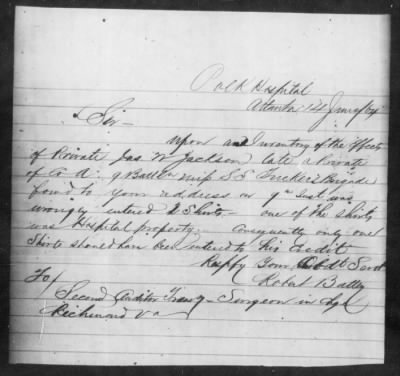 Polk Hospital
Atlanta 14 June/64
Sir
Upon an Inventory of the Effects
of Private Jas W Jackson late a Private
of Co A. 9 Battn Miss S S Tucker's Brigade
to your address on 9th Inst was
wrongly entered 2 Shirts - one of the shirts
was Hospital property, Consequently only one
Shirt should have been entered to his credit
Respfy Your Obdt Servt
Robert Battey
To Surgeon in chge
Second Auditor Treasy
Richmond Va